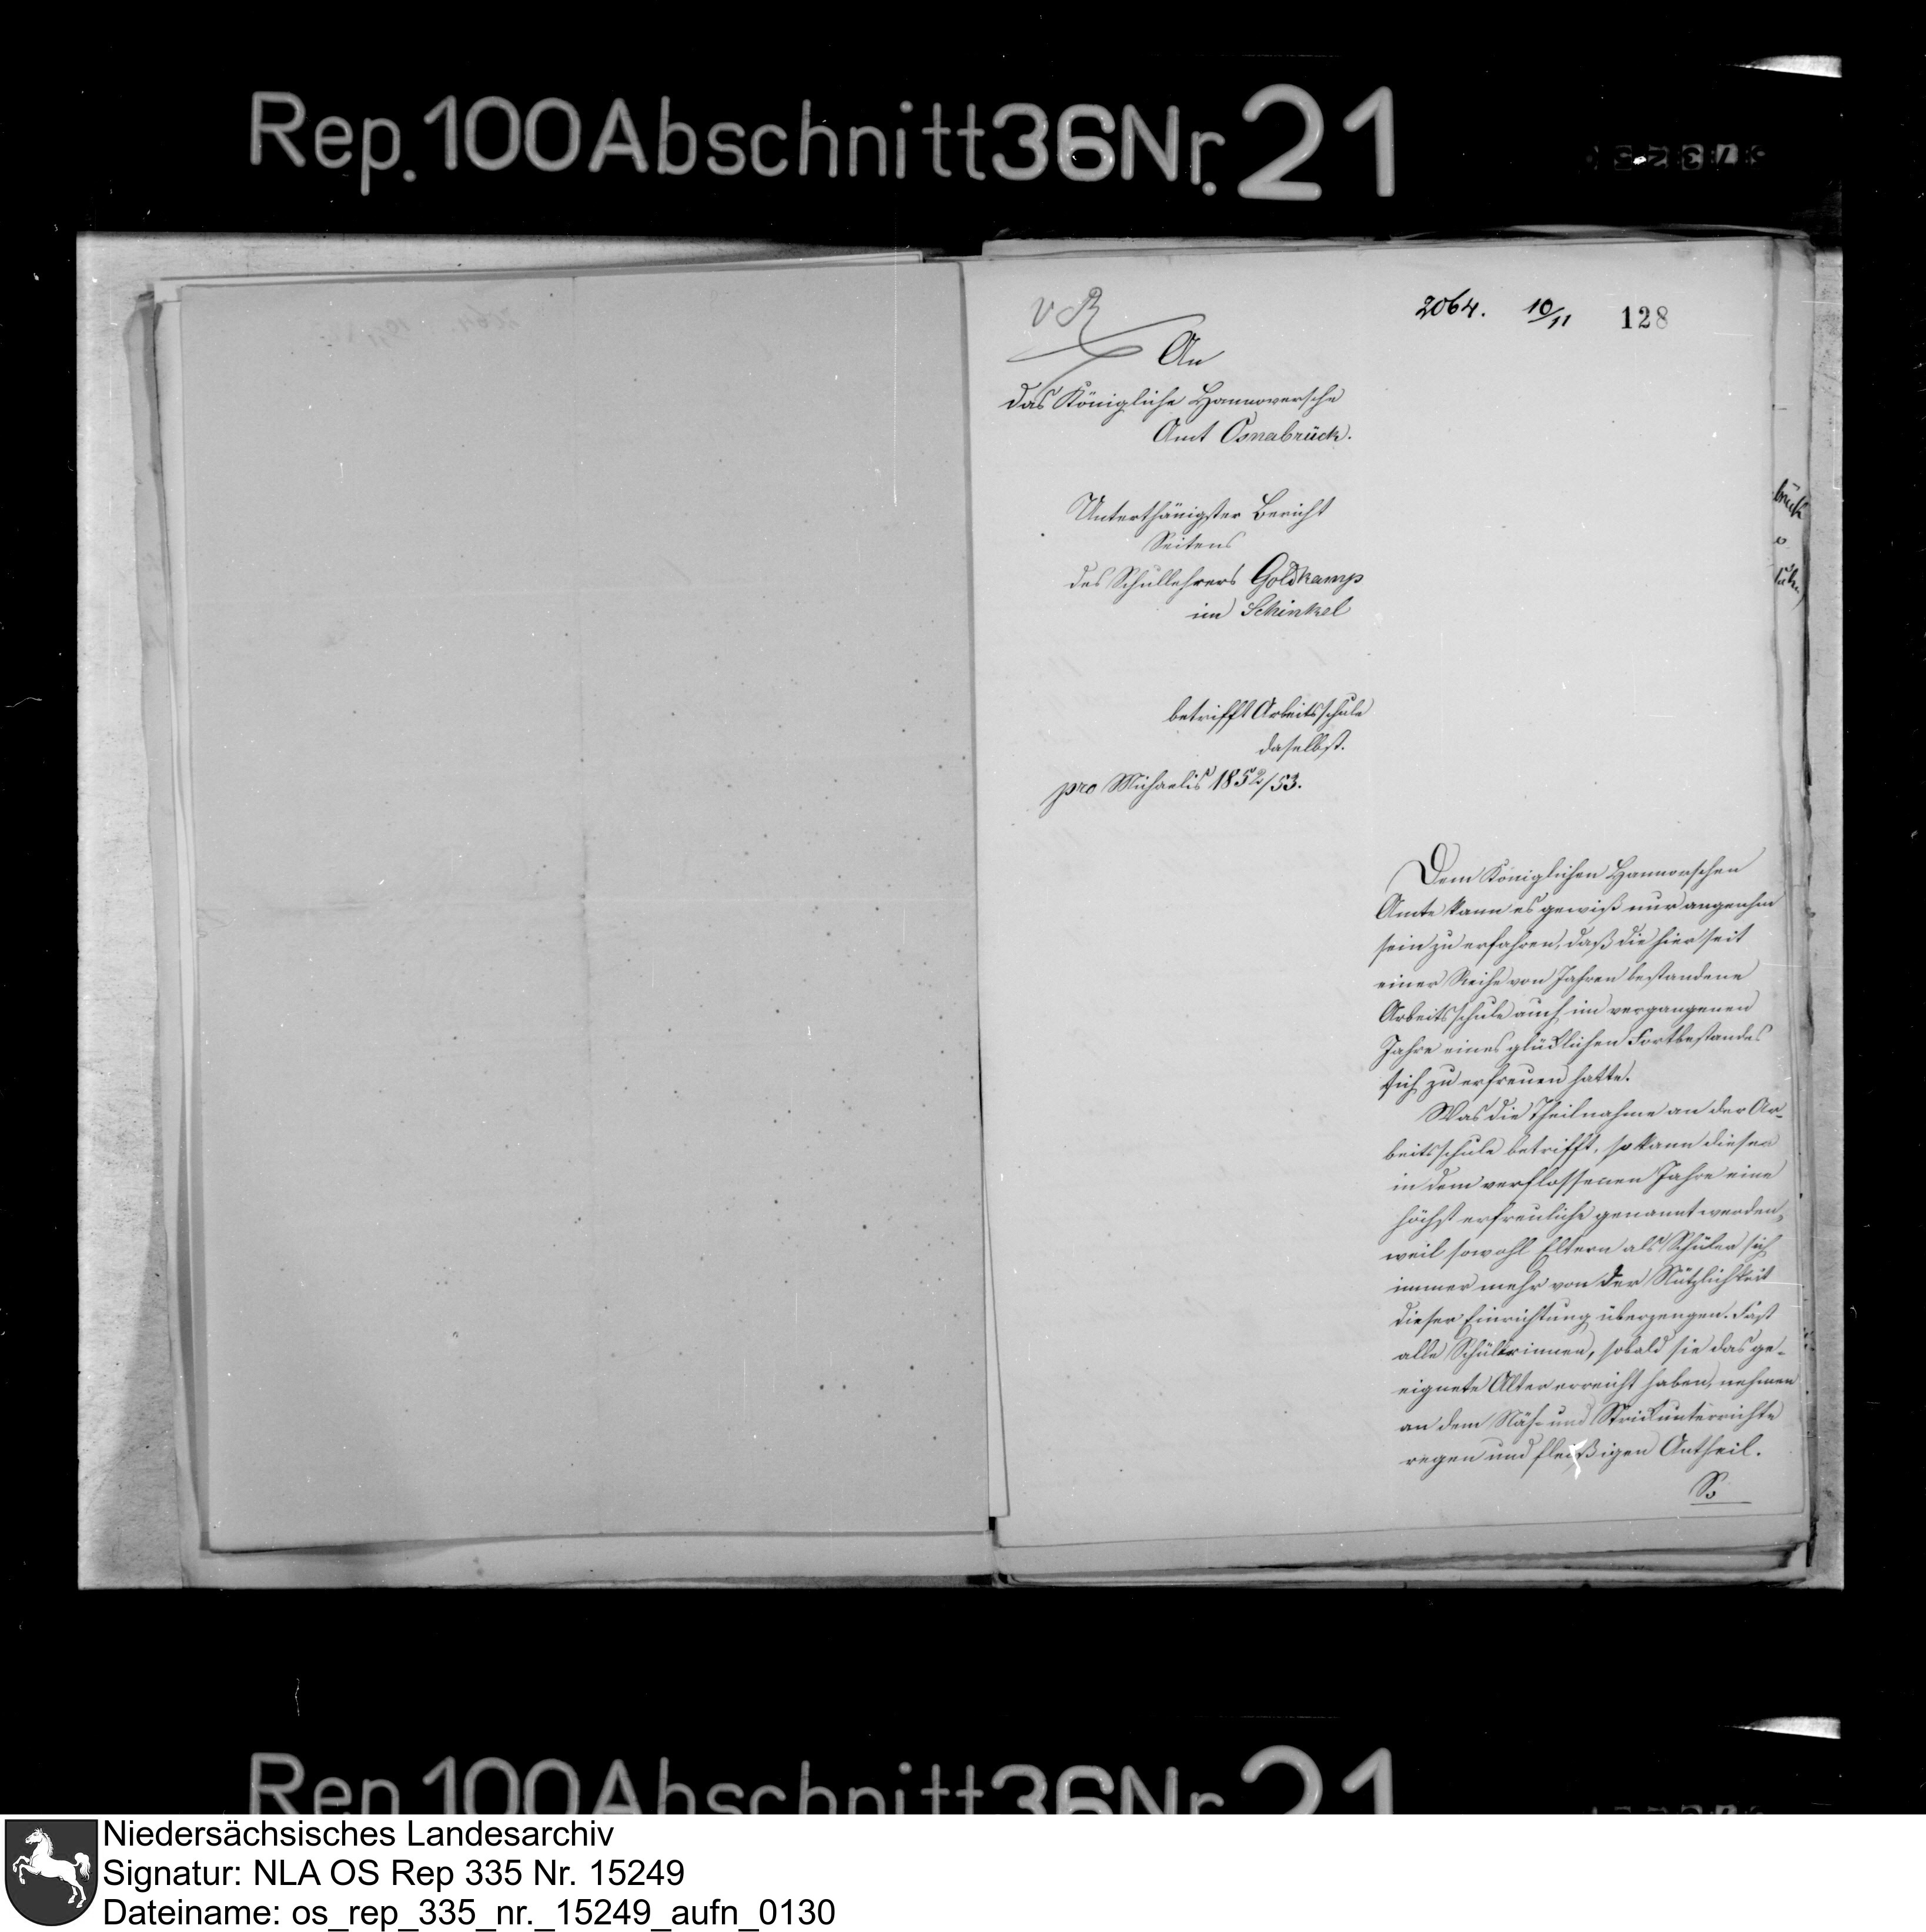 Rep. 100 Abschnitt 36 Nr. 21
2064. 10/11 128
v R
An
das Königliche Hannoversche
Amt Osnabrück.
Unterthänigster Bericht
Seitens
des Schullehrers Goldkamp
im Schinkel
betrifft Arbeitsschule
daselbst.
pro Michaelis 1852/53.
Dem Königlichen Hannoverschen
Amte kann es gewiß nur angenehm
sein zu erfahren, daß die hier seit
einer Reihe von Jahren bestandene
Arbeitsschule auch im vergangenen
Jahre eines glücklichen Fortbestandes
sich zu erfreuen hatte.
Was die Theilnahme an der Ar-
beitsschule betrifft, so kann diese
in dem verflossenen Jahre eine
höchst erfreuliche genannt werden,
weil sowohl Eltern als Schüler sich
immer mehr von der Nützlichkeit
dieser Einrichtung überzeugen. Fast
alle Schülerinnen, sobald sie das ge-
eignete Alter erreicht haben, nehmen
an dem Näh- und Strickunterrichte
regen und fleißigen Antheil.
So
brück
Rep. 100 Abschnitt 36 Nr. 21
Niedersächsisches Landesarchiv
Signatur: NLA OS Rep 335 Nr. 15249
Dateiname: os_rep_335_nr._15249_aufn_0130